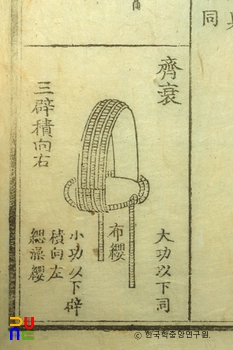 同
齊衰
大功以下同
布纓
三辟積向右
小功以下辟
積向左
緦澡纓
© 한국학중앙연구원